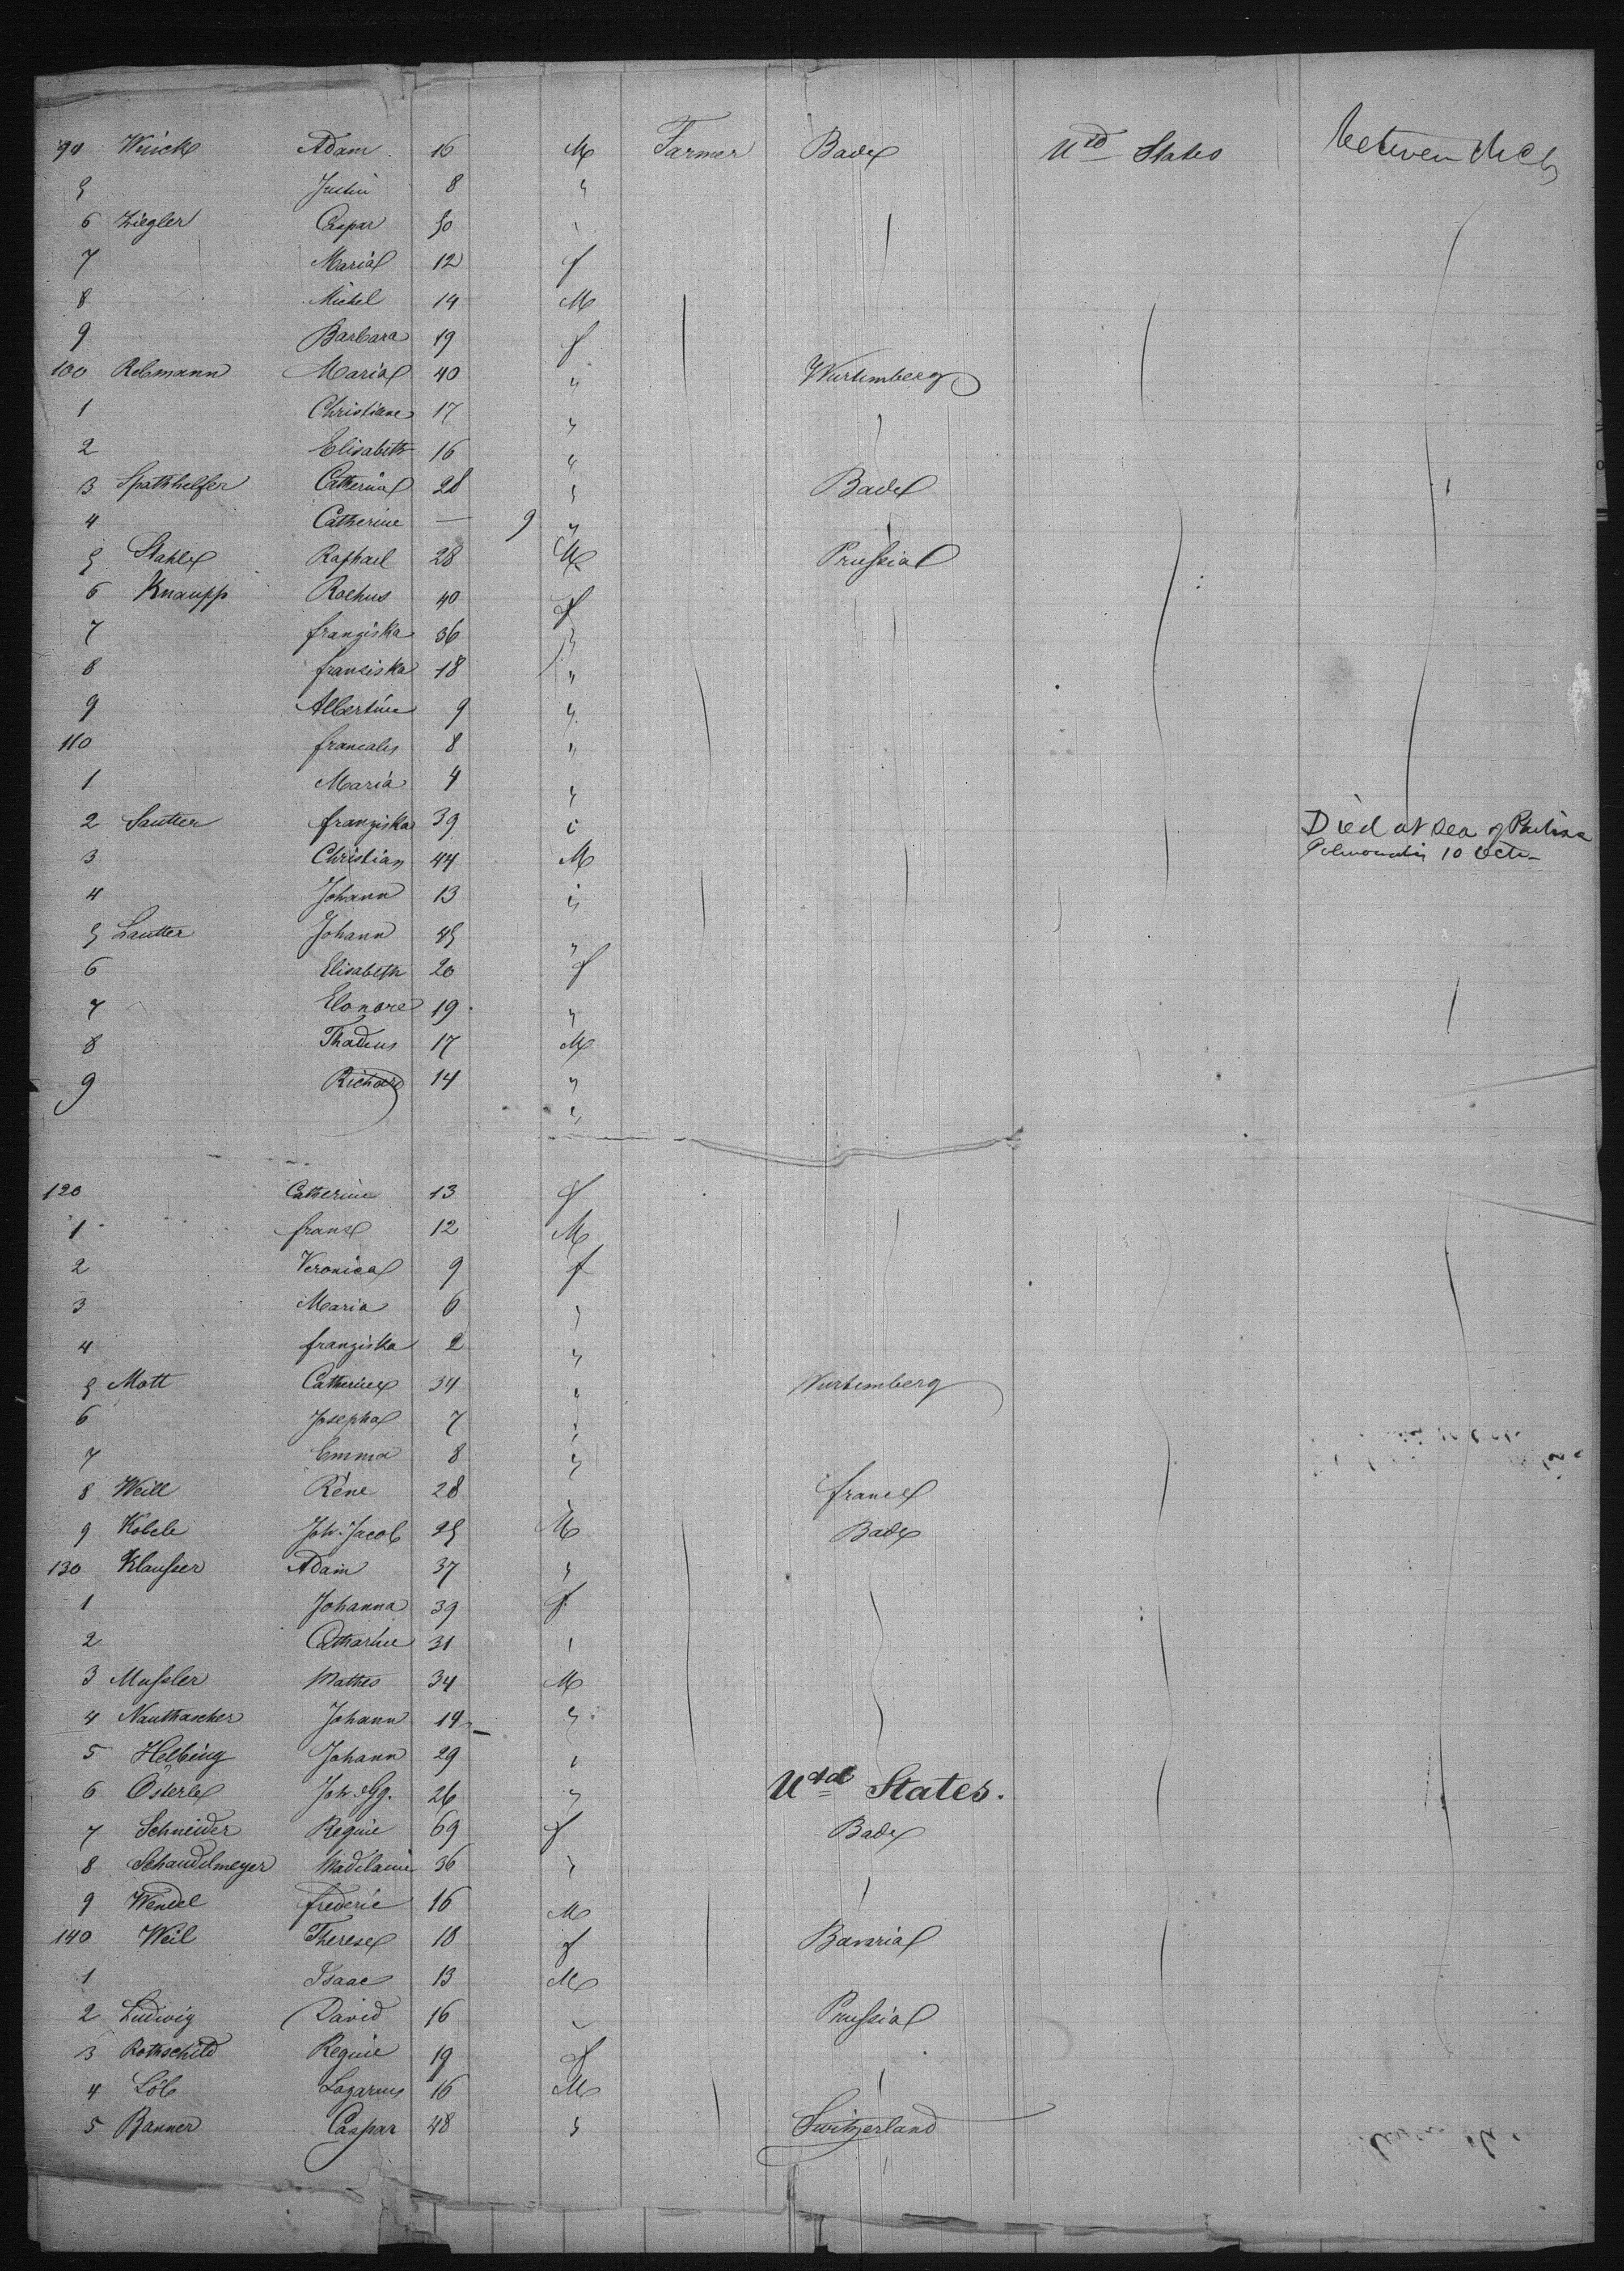 94 Wuick Adam 16 M Farmer Bade U^d States between decks
5 Justin 8 "
6 Ziegler Caspar 50 "
7 Maria 12 f
8 Michel 14 M
9 Barbara 19 f
100 Rebmann Maria 40 " Wurtemberg
1 Christiane 17 "
2 Elisabeth 16 "
3 Spathhelfer Catherina 28 " Bade
4 Catherine — 9 "
5 Stahle Raphael 28 M Prussia
6 Knaupp Rochus 40 f
7 franziska 36 "
8 franziska 18 "
9 Albertine 9 "
110 8 "
1 Maria 4 "
2 Sautter franziska 39 " Died at sea of
3 Christian 44 M 10 Octr
4 Johann 13 "
5 Lautter Johann 45 "
6 Elisabeth 20 f
7 Elonore 19 "
8 Thadeus 17 M
9 Richard 14 "
"
120 Catherine 13 f
1 franz 12 M
2 Veronica 9 f
3 Maria 6 "
4 franziska 2 "
5 Mott Catherine 34 " Wurtemberg
6 Josepha 7 "
7 Emma 8 "
8 Weill Réne 28 france
9 Kobele Joh. Jacob 25 M Bade
130 Klausser Adam 37 "
1 Johanna 39 f
2 Catharine 31 "
3 Mussler Mathes 34 M
4 Nauthascher Johann 14 "
5 Helbing Johann 29 "
6 Osterle Joh. Gg. 26 " U^td States.
7 Schneider Regine 69 f Bade
8 Schaudelmeyer Madelaine 36 "
9 Wendel frederic 16 M
140 Weil Therese 18 f Bavaria
1 Isaac 13 M
2 Ludwig David 16 " Prussia
3 Rothschild Regine 19 f
4 Löb Lazarus 16 M
5 Banner Caspar 48 " Switzerland